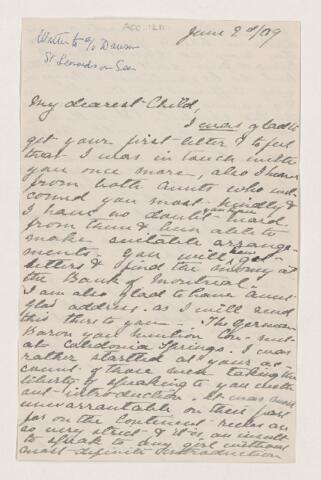 ACC. 1211
June 2nd/09
Write to c/o Dawson
St Leonards on Sea
My dearest Child,
I was glad to
get your first letter & to feel
that I was in touch with
you once more, also I hear
from both aunts who wel-
comed you most kindly &
I have no doubt you have heard
from them & been able to
make suitable arrange-
ments. You will have got
letters & find the money at
the Bank of Montreal.
I am also glad to have Aunt
glad address. as I will send
this there to you — The German
Baron you mention
at Caledonia Springs. I was
rather startled at your ac-
count of those men taking the
liberty of speaking to you with
out introduction. It was most
unwarrantable on their part
for on the Continent rules are
so very strict & it is an insult
to speak to any girl without
most definite introduction